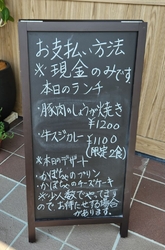 お支払い方法
※現金のみです
本日のランチ
・豚肉のしょうが焼き
¥1200
・牛スジカレー ¥1100
(限定2食)
※本日のデザート
・かぼちゃのプリン
・かぼちゃのチーズケーキ
※少人数でやってますので
お待たせする場合
があります。